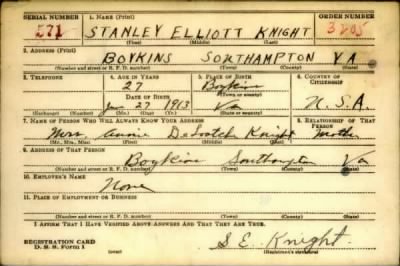 SERIAL NUMBER 1. NAME (Print) ORDER NUMBER
571 STANLEY ELLIOTT KNIGHT 3205
(First) (Middle) (Last)
2. ADDRESS (Print)
BOYKINS SOUTHAMPTON VA
(Number and street or R. F. D. number) (Town) (County) (State)
3. TELEPHONE 4. AGE IN YEARS 5. PLACE OF BIRTH 6. COUNTRY OF CITIZENSHIP
27 Boykins
DATE OF BIRTH (Town or county)
27 1913 Va U.S.A.
(Exchange) (Number) (Mo.) (Day) (Yr.) (State or country)
7. NAME OF PERSON WHO WILL ALWAYS KNOW YOUR ADDRESS 8. RELATIONSHIP OF THAT PERSON
Mrs. Annie Knight Mother
(Mr., Mrs., Miss) (First) (Middle) (Last)
9. ADDRESS OF THAT PERSON
Boykins Southampton Va
(Number and street or R. F. D. number) (Town) (County) (State)
10. EMPLOYER'S NAME
None
11. PLACE OF EMPLOYMENT OR BUSINESS
(Number and street or R. F. D. number) (Town) (County) (State)
I AFFIRM THAT I HAVE VERIFIED ABOVE ANSWERS AND THAT THEY ARE TRUE.
REGISTRATION CARD
D. S. S. Form 1 (over) S. E. Knight
(Registrant's signature)